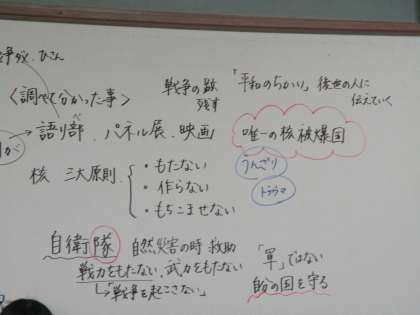 争が、ひさん
<調べて分かった事>
戦争の数
残す
「平和のちかい」後世の人に
伝えていく
語り部、パネル展、映画
べ
唯一の核被爆国
核 三大原則
・もたない
・作らない
・もちこませない
うんざり
トラウマ
自衛隊 自然災害の時 救助
戦力をもたない、武力をもたない
↳「戦争を起こさない」
「軍」ではない
自分の国を守る